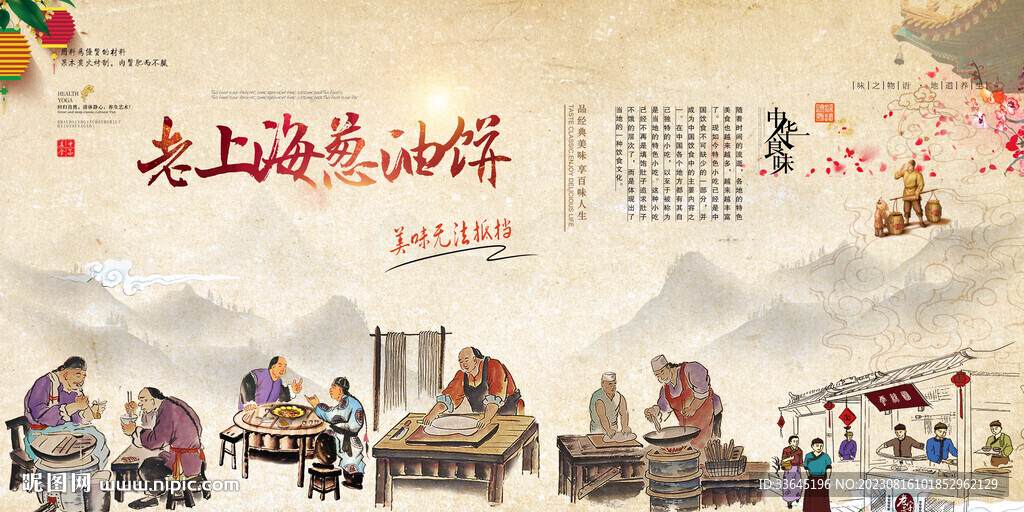 用料为优质的材料
果木炭火烤制，肉质肥而不腻
HEALTH
YOGA
回归自然，清体静心，养生艺术！
老上海葱油饼
美味无法抵挡
品经典美味 享百味人生
TASTE CLASSIC,ENJOY DELICIOUS LIFE
随着时间的流逝，各地的特色
美食也越来越多，越来越丰富
了，现如今特色小吃已经是中
国饮食中不可缺少的一部分，并
成为中国饮食中的主要内容之
一。在中国各个地方都有其自
己独特的小吃，以至于被称为
是当地的特色小吃。这种小吃
已经不再是填饱肚子追求肚子
不饿的层次了，而是体现出了
当地的一种饮食文化。
中华食味
味之物语·地道养生
昵图网 www.nipic.com
ID:33645196 NO:20230816101852962129